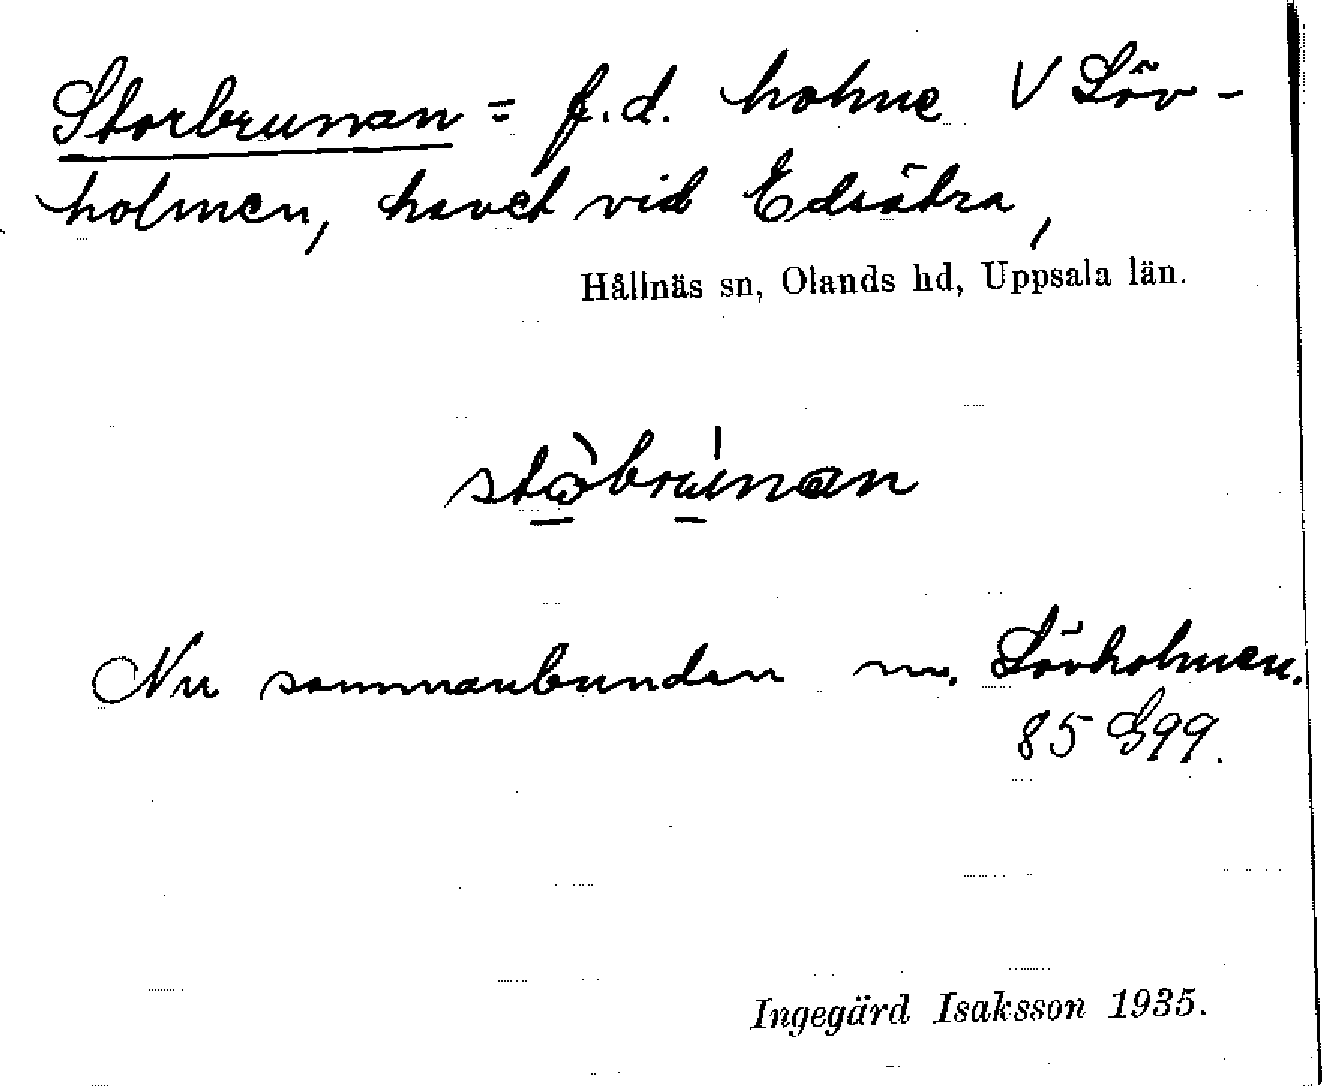 Storbrunan = f.d. holme V Löv-
holmen, havet vid Edsätra,
Hållnäs sn, Olands hd, Uppsala län.
Nu sammanbunden m. Lövholmen.
85 G99.
Ingegärd Isaksson 1935.